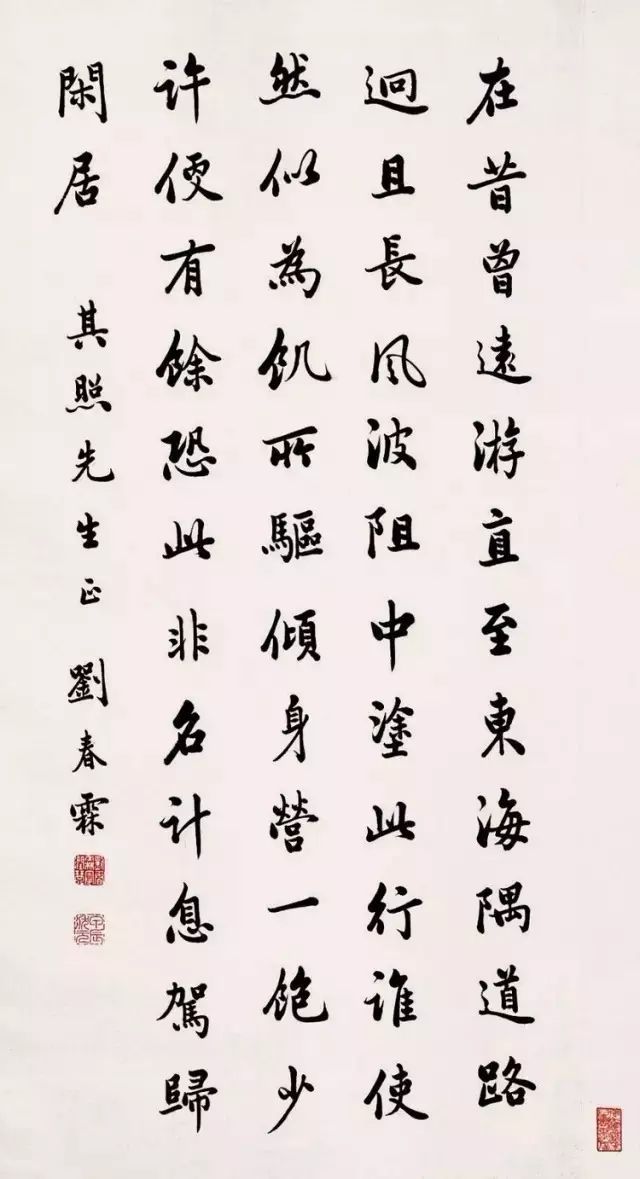 在昔曾遠游直至東海隅道路
迥且長風波阻中塗此行誰使
然似為飢所驅傾身營一飽少
許便有餘恐此非名計息駕歸
閑居 其照先生正 劉春霖